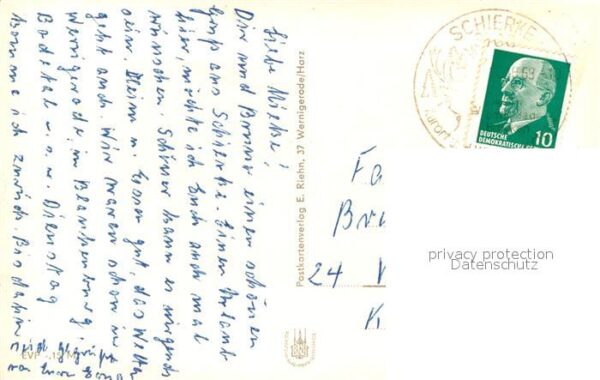 Liebe Mieke!
Dir und Bruno einen schönen
Gruß aus Schierke. Einen Urlaub
hier, möchte ich Euch auch mal
wünschen. Schöner kann es nirgends
sein. Heim u. Essen gut, das Wetter
geht auch. Wir waren schon in
Wernigerode, in Blankenburg,
Bodetal u.s.w. Dienstag
komme ich zurück. Bis dahin
seid gegrüßt
von Eurer
EVP -,15 M
Postkartenverlag E. Riehn, 37 Wernigerode/Harz
SCHIERKE
DEUTSCHE
DEMOKRATISCHE
10
Fa
Br
24 W
K
privacy protection
Datenschutz